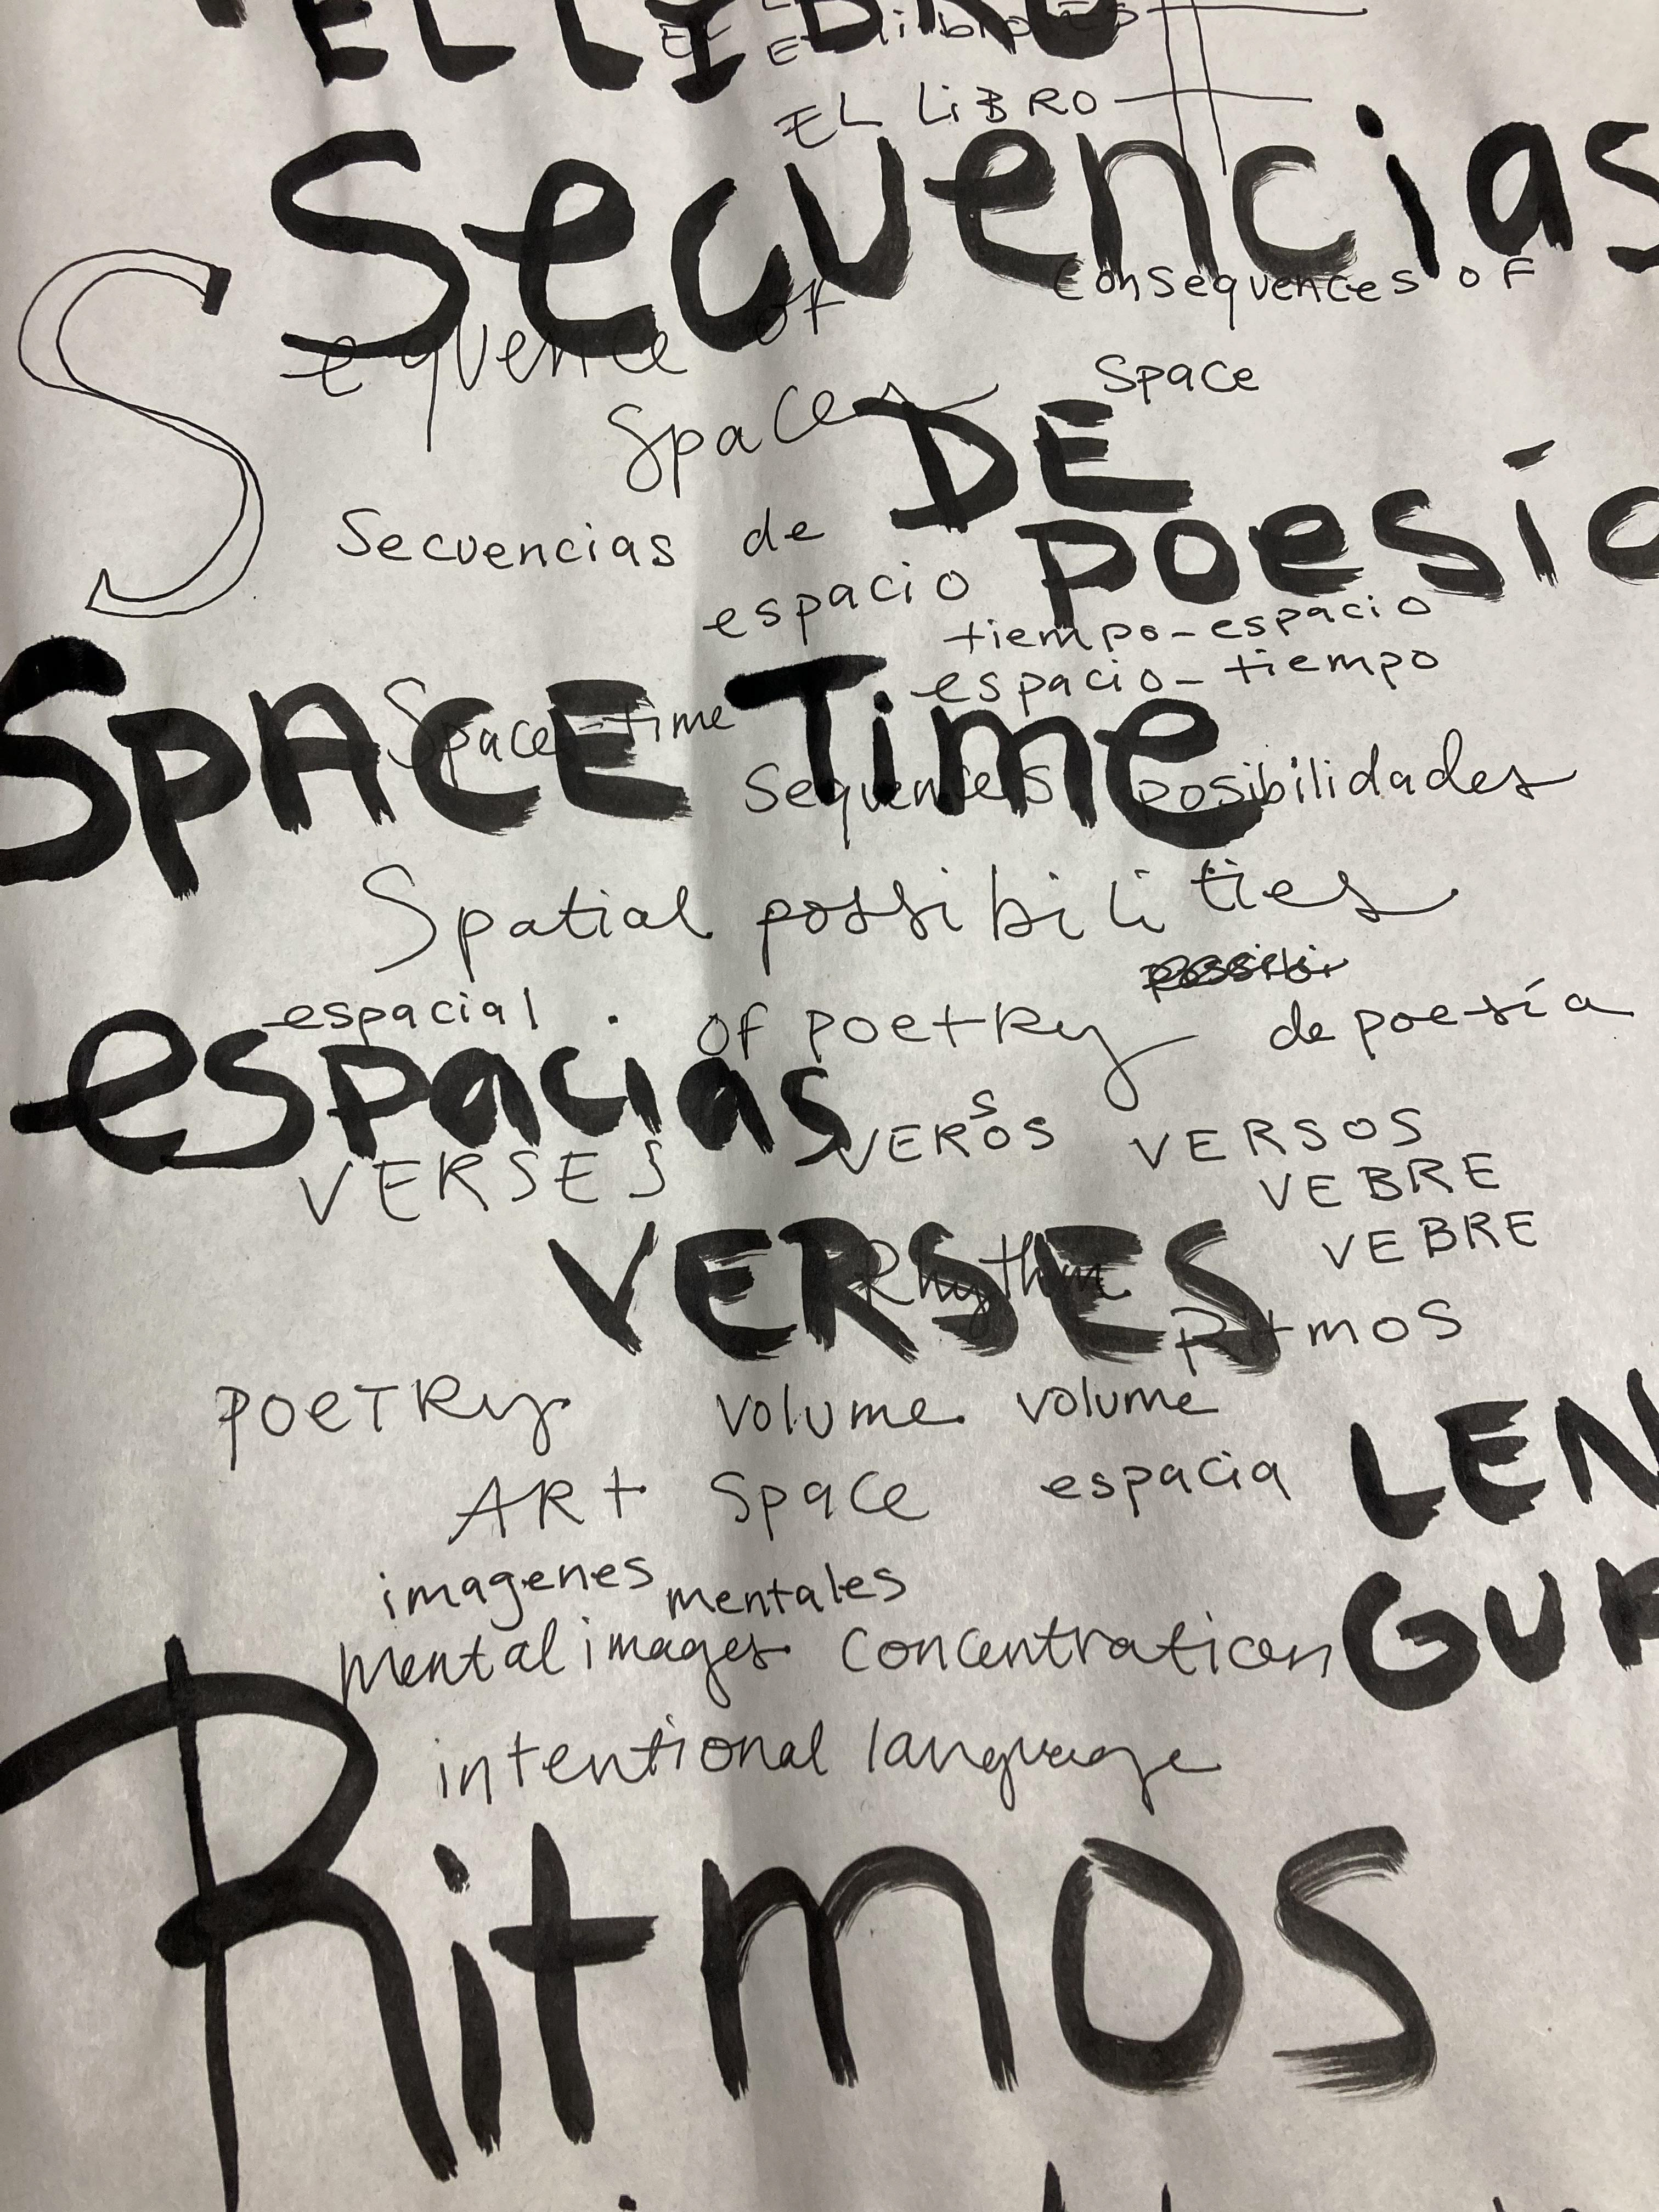 EL LIBRO
EL LiBRO
Secuencias
Sequence of
consequences of
Spaces
Space
DE
Secuencias de
poesía
espacio
tiempo-espacio
espacio-tiempo
SPACE Time
Space-time
Sequences posibilidades
Spatial possibilities
espacial
of poetry de poesía
espacias
VERSES VEROS S VERSOS
VEBRE
VEBRE
VERSES
Rhythm
Ritmos
POETRy volume volume
LEN
ARt Space espacia
imagenes mentales
GUA
mental images concentration
intentional language
Ritmos